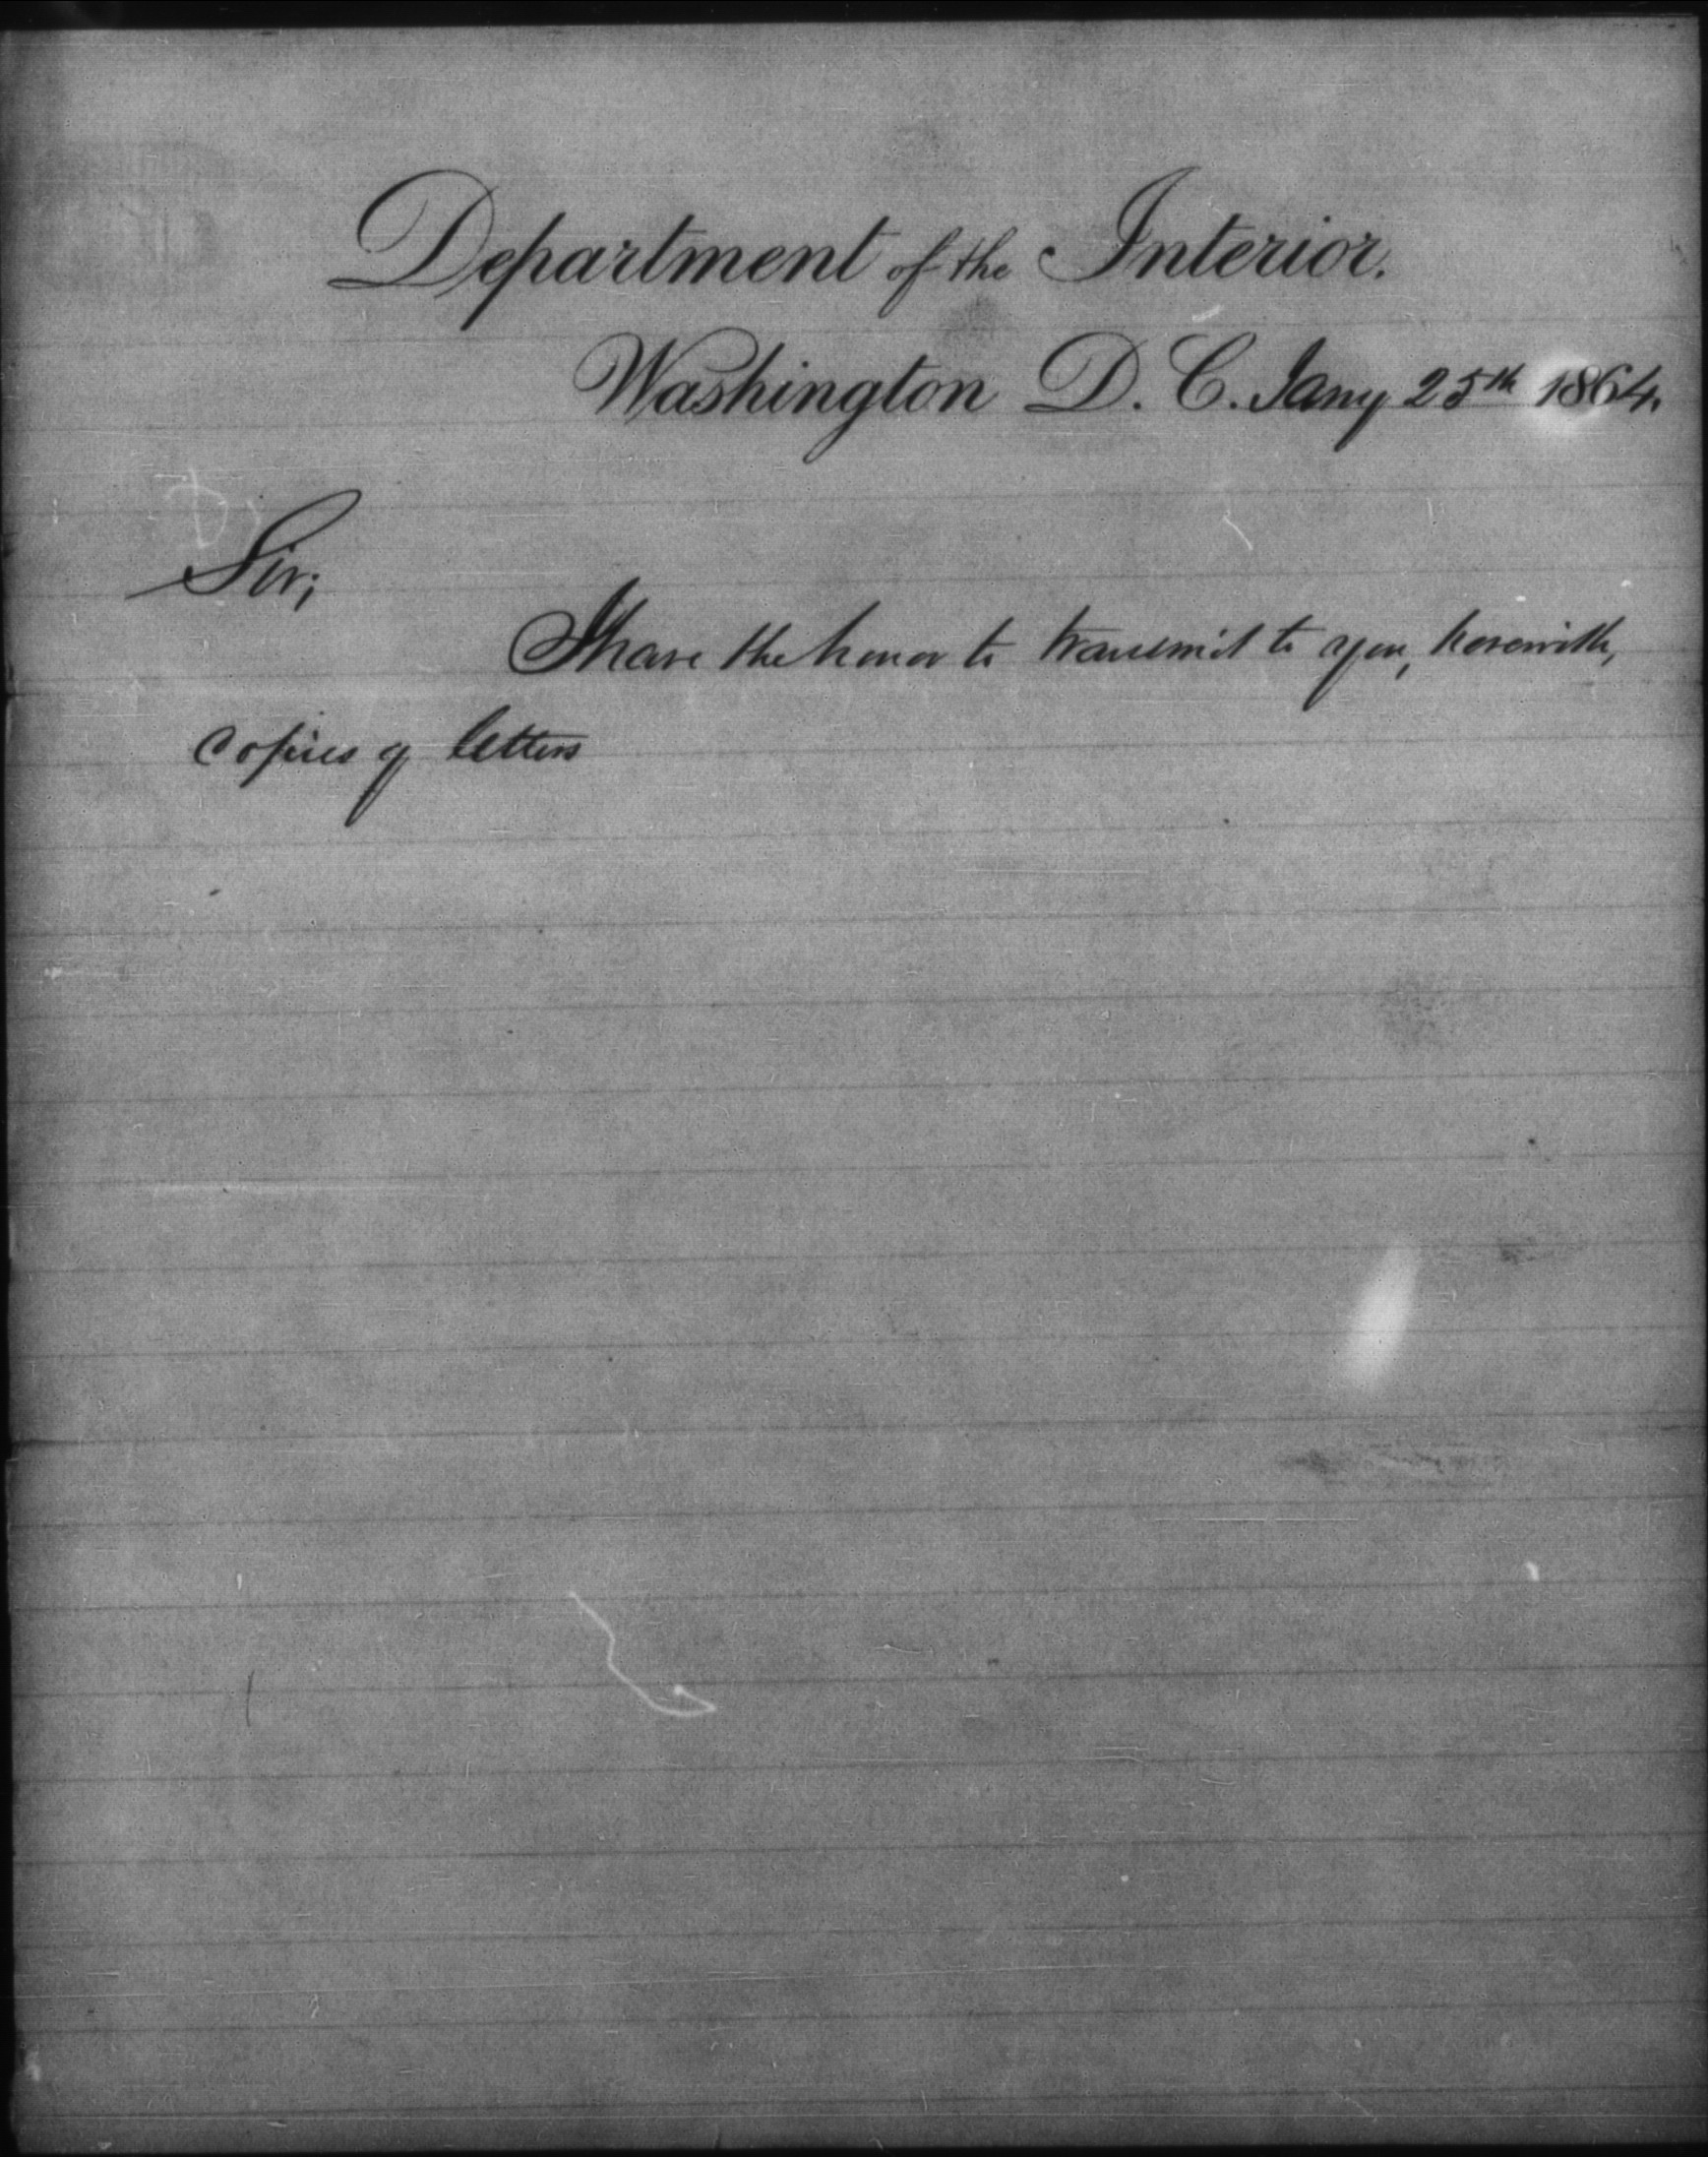 Department of the Interior.
Washington D. C. Jany 25th 1864.
Sir;
I have the honor to transmit to you, herewith,
copies of letters